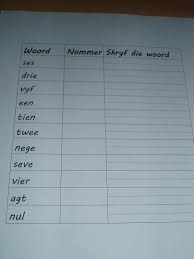 Woord Nommer Skryf die woord
ses
drie
vyf
een
tien
twee
nege
seve
vier
agt
nul